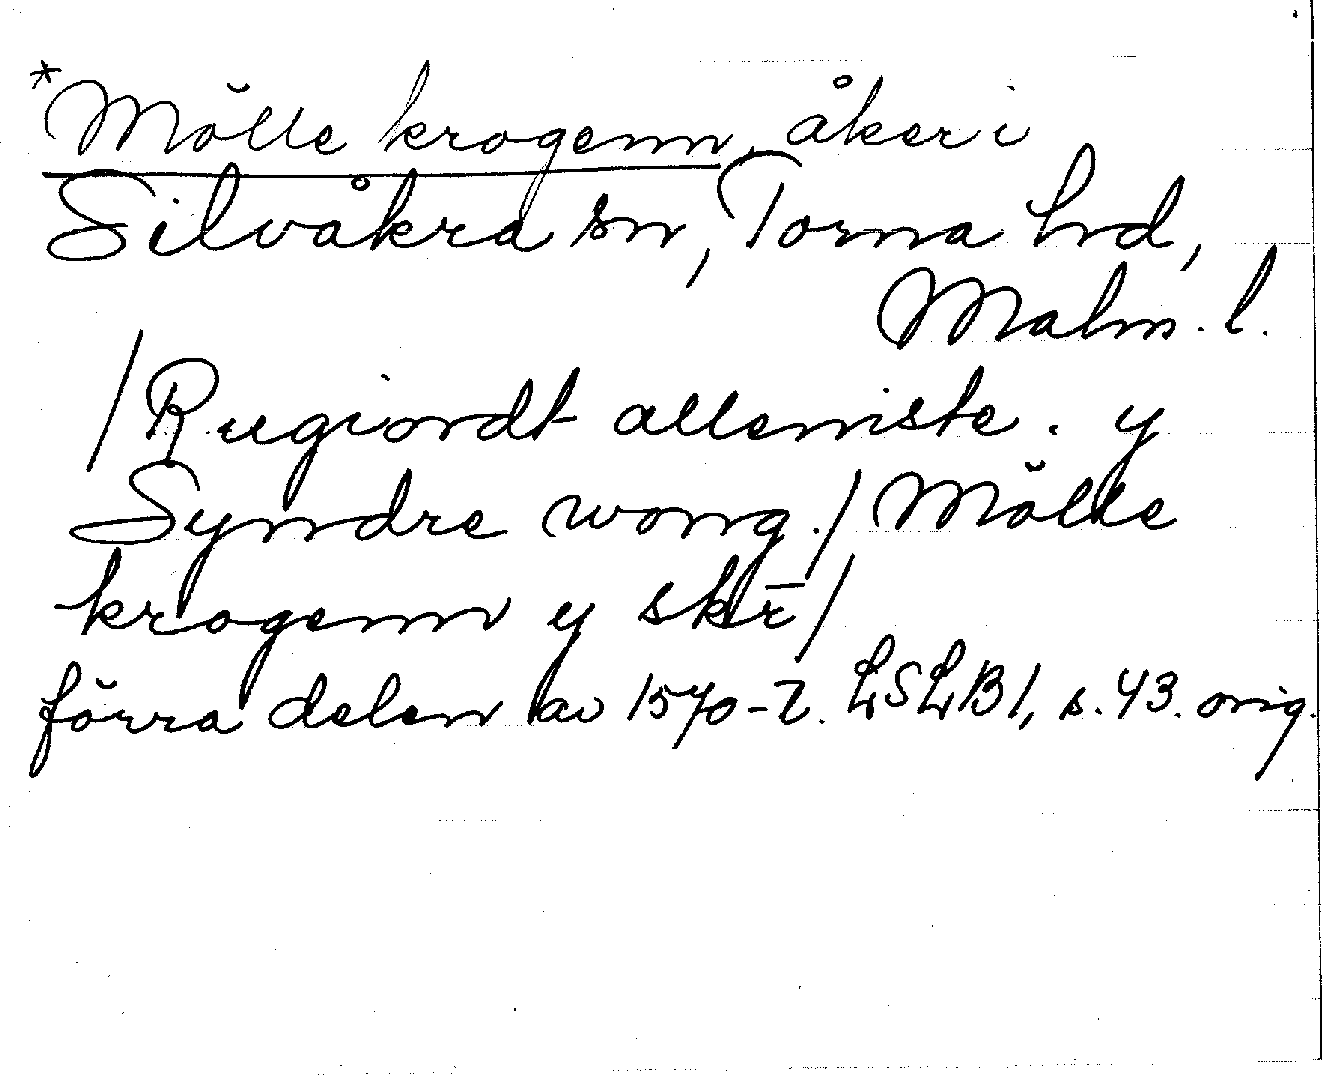 *Mölle krogenn, åker i
Silvåkra sn, Torna hd,
Malm. l.
/Rugiordt allemiste. y
Syndre wong./Mölle
krogenn y skr̄/
förra delen av 1570-t. LSLB1, s. 43. orig.